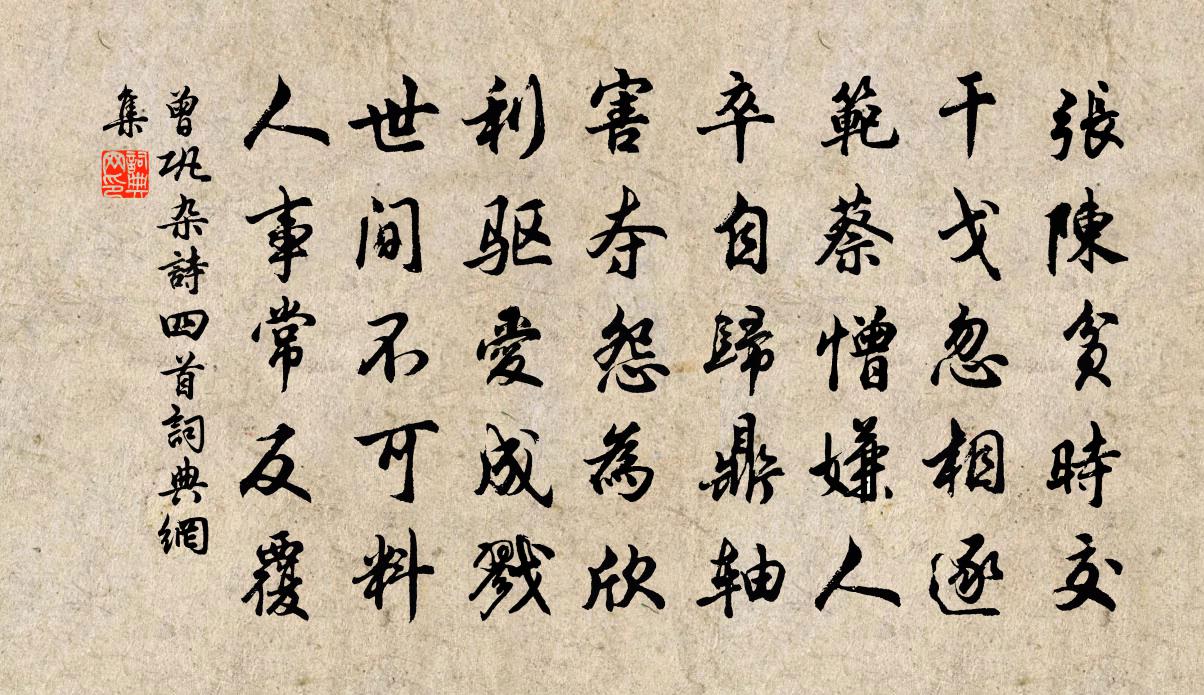 張陳貧時交
干戈忽相逐
範蔡憎嫌人
卒自歸鼎軸
害夺怨為欣
利驱愛成戮
世间不可料
人事常反覆
曾巩杂詩四首詞典網
集
詞典网印